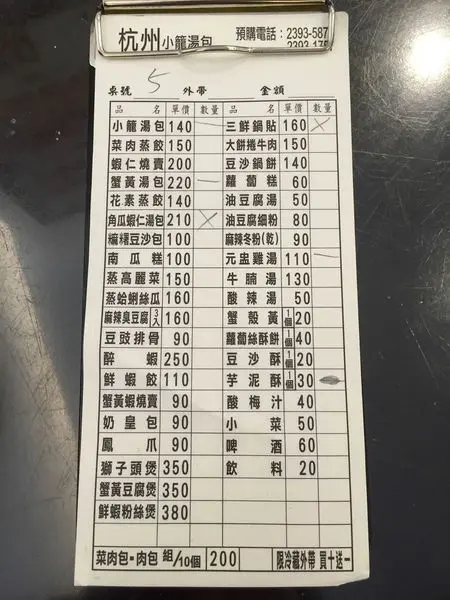 杭州小籠湯包 預購電話：2393-587
桌號 5 外帶 金額
品名 單價 數量 品名 單價 數量
小籠湯包 140 三鮮鍋貼 160
菜肉蒸餃 150 大餅捲牛肉 150
蝦仁燒賣 200 豆沙鍋餅 140
蟹黃湯包 220 蘿蔔糕 60
花素蒸餃 140 油豆腐湯 50
角瓜蝦仁湯包 210 油豆腐細粉 80
豆沙包 100 麻辣冬粉(乾) 90
南瓜糕 100 元盅雞湯 110
蒸高麗菜 150 牛腩湯 130
蒸蛤蜊絲瓜 160 酸辣湯 50
麻辣臭豆腐 3入 160 蟹殼黃 1個 20
豆豉排骨 90 蘿蔔絲酥餅 1個 40
醉蝦 250 豆沙酥 1個 20
鮮蝦餃 110 芋泥酥 1個 30
蟹黃蝦燒賣 90 酸梅汁 40
奶皇包 90 小菜 50
鳳爪 90 啤酒 60
獅子頭煲 350 飲料 20
蟹黃豆腐煲 350
鮮蝦粉絲煲 380
菜肉包-肉包 組/10個 200 限冷藏外帶 買十送一